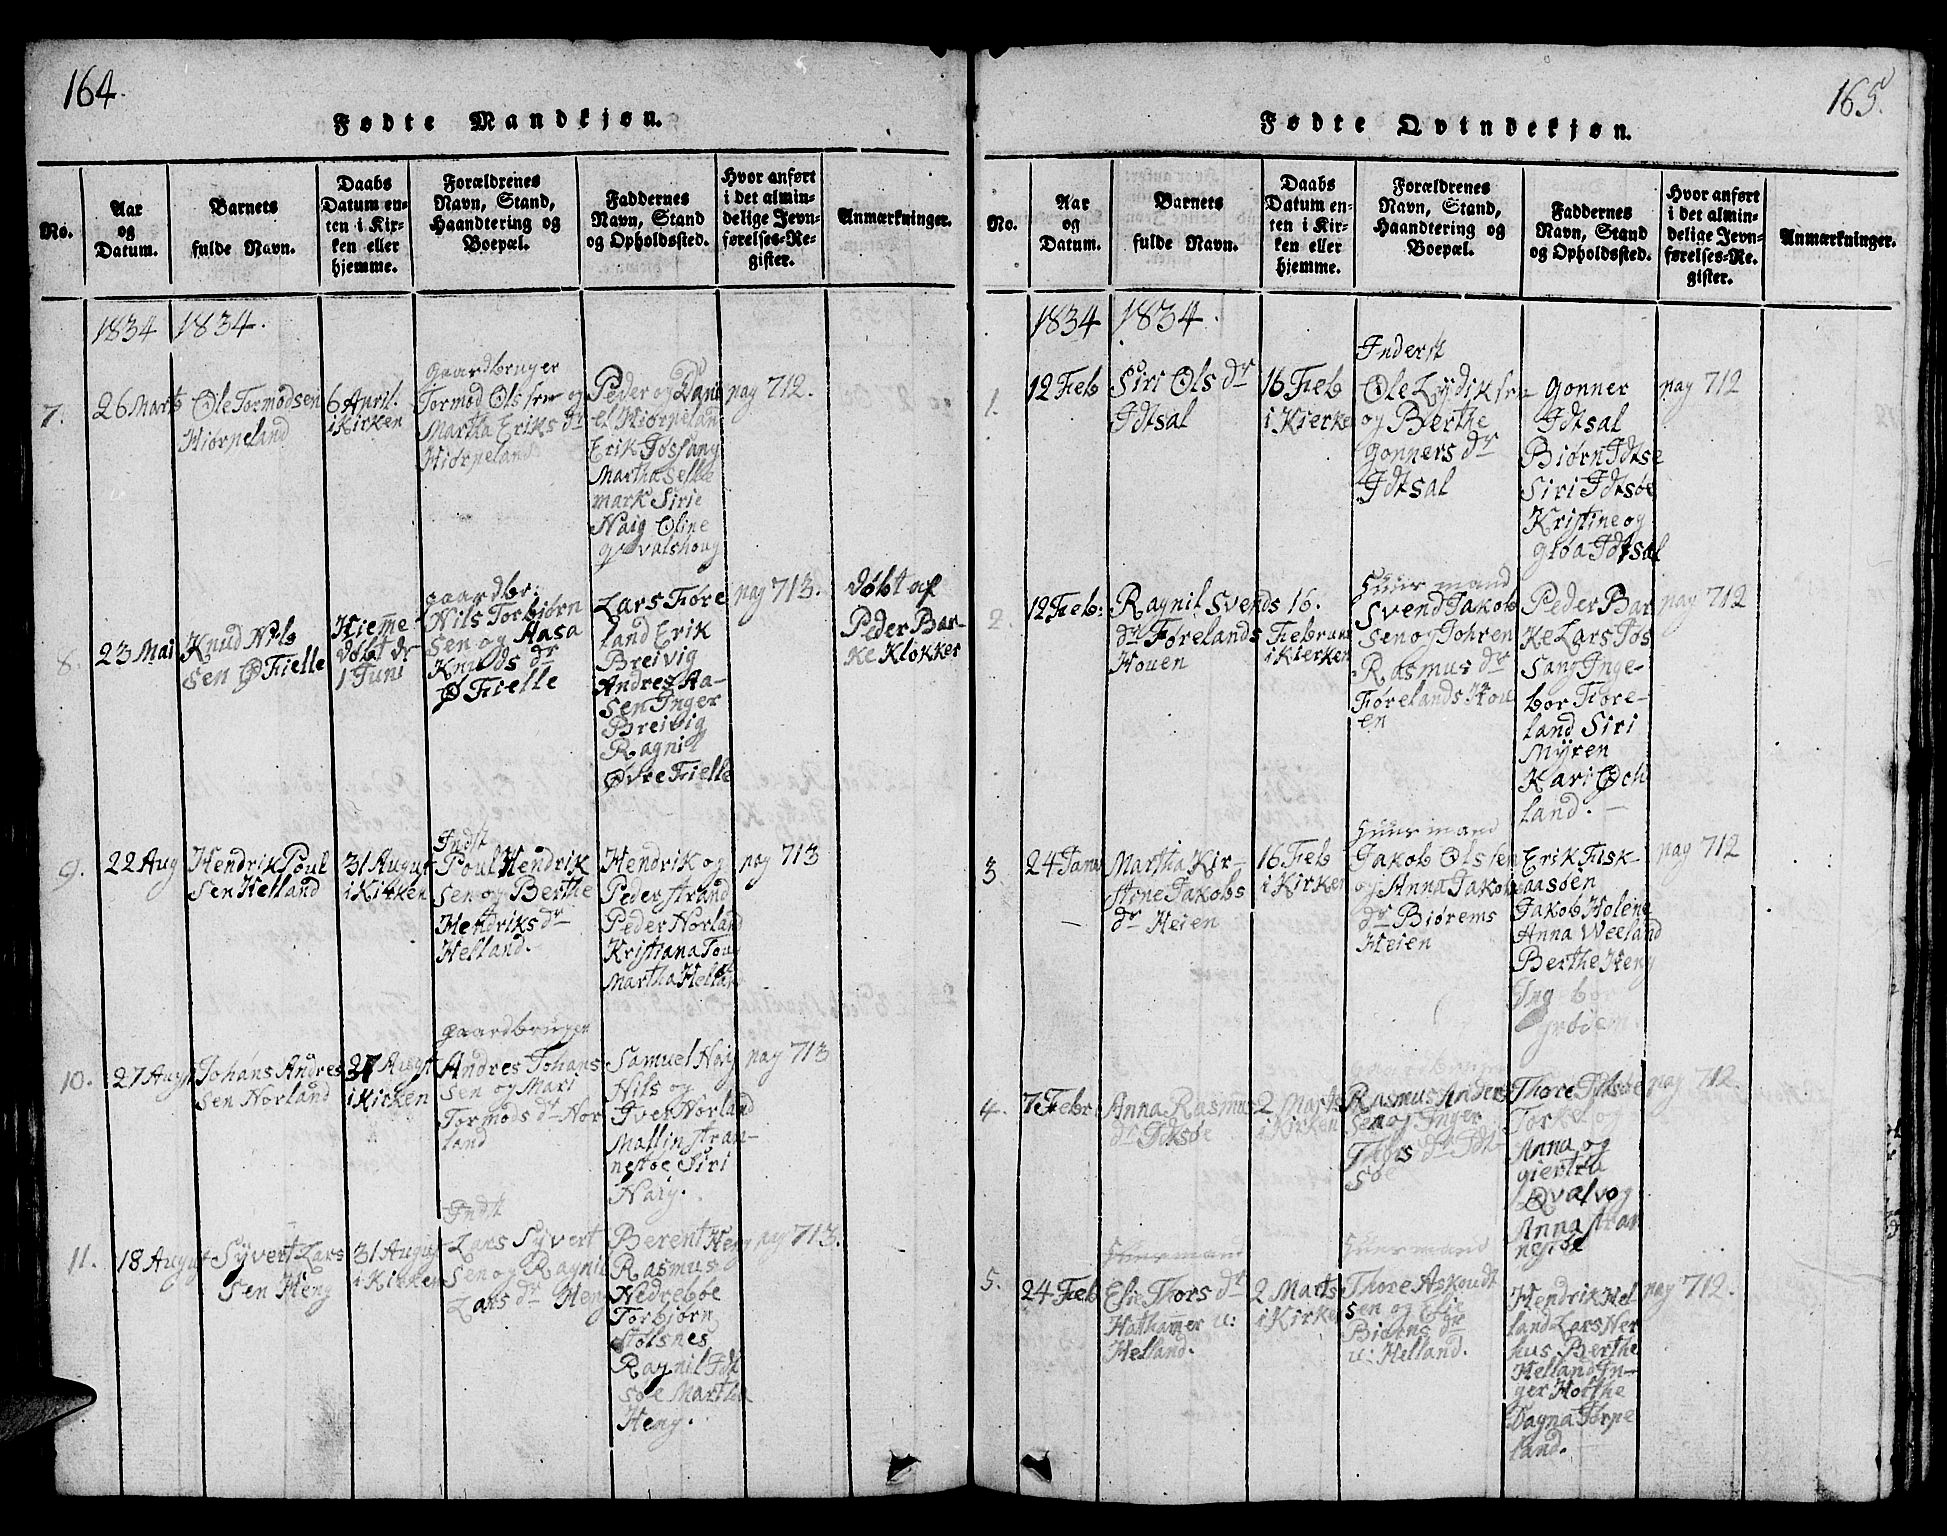 164.
Fødte Mandkjøn.
No.
Aar
og
Datum.
Barnets
fulde Navn.
Daabs
Datum en-
ten i Kir-
ken eller
hjemme.
Forældrenes
Navn, Stand,
Haandtering og
Boepæl.
Faddernes
Navn, Stand
og Opholdssted.
Hvor anført
i det almin-
delige Jevn-
førelses-Re-
gister.
Anmærkninger.
1834
1834.
7.
26 Marts
Ole Tormodsen
Hiørpeland
6 April.
i Kirken
Gaardbruger
Tormod Ols sen og
Martha Eriks dr
Hiørpeland
Peder og Dani
el Hiørpeland
Erik Jøssang
Martha Selle
mark Sirie
Naig Oline
Gvalshoug
pag 712.
8.
23 Mai
Knud Nils
sen ØFielle
Hieme
døbt d
1 Juni
Gaardbr:
Nils Torbjørn
sen og Aasa
Knuds dr
ØFielle
Lars Føre
land Erik
Breivig
Andres Aa-
sen Inger
Breivig
Ragnil
Øvre Fielle
pag 713.
døbt af
Peder Bar-
ke Klokker
9.
22 Aug
Hendrik Poul
sen Helland
31 August
i Kirken
Indst
Poul Hendrik
sen og Berthe
Hendriks dr
Helland.
Hendrik og
Peder strand
Peder Norland
Kristiana Tou
Martha Helland
pag 713
10.
27 Augst
Johans Andres
sen Norland
27 August
i Kirken
Gaardbruger
Andres Johans
sen og Mari
Tormods dr Nor
land
Samuel Naig
Nils og
Iver Norland
Mallin stran-
nestøe Siri
Naig.
pag 713
11.
18 August
Syvert Lars
sen Heng
31 August
i Kirken
Indst
Lars Syvert
sen og Ragnil
Lars dr Heng
Berent Heng
Rasmus
Nedrebøe
Torbjørn
Stølsnes
Ragnil Idt
søe Martha
Heng.
pag 713.
165.
Fødte Qvindekjøn.
No.
Aar
og
Datum.
Barnets
fulde Navn.
Daabs
Datum en-
ten i Kir-
ken eller
hjemme.
Forældrenes
Navn, Stand,
Haandtering og
Boepæl.
Faddernes
Navn, Stand
og Opholdssted.
Hvor anført
i det almin-
delige Jevn-
førelses-Re-
gister.
Anmærkninger.
1834
1834.
1.
12 Feb
Siri Ols dr
Idtsal
16 Feb
i Kierken
Inderst
Ole Lydiksen
og Berthe
Gonners dr
Idtsal
Gonner
Idtsal
Biørn Idtsø
Siri Idtsøe
Kristine og
Gtøa Idtsal
pag 712
2.
12 Feb:
Ragnil Svends
dr Førelands
Houen
16.
Februar
i Kierken
Huusmand
Svend Jakob
sen og Johren
Rasmus dr
Førelands Hou
en
Peder Bar
ke Lars Jøs
sang Inge-
bor Føre-
land Siri
Myren
Kari Øch
land.
pag 712
3
24 Janu
Martha Kir-
stene Jakobs
dr Heien
16 Feb
i Kirken
Huusmand
Jakob Olssen
og Anna Jakobs
dr Biørems
Heien
Erik Fisk-
aasøen
Jakob Holene
Anna Weeland
Berthe Heng
Ingebor
Grøem.
pag 712
4.
7 Febr
Anna Rasmus
dr Idtsøe
2 Marts
i Kirken
Gaardbruger
Rasmus Anders
sen og Inger
Thors dr Idt
søe
Thore Idtsøe
Torke og
Anna og
Giertru
Qvalvog
Anna stran
nestøe
pag 712.
5.
24 Feb
Huusmand
Elie Thors dr
Hathamer u:
Helland.
2 Marts
i Kirken
Huusmand
Thore Askoudt
sen og Elie
Biørns dr
u: Helland.
Hendrik Hel
land Lars Ner
hus Berthe
Helland In-
ger Horthe
Dagna Tørpe
land.
pag 712.